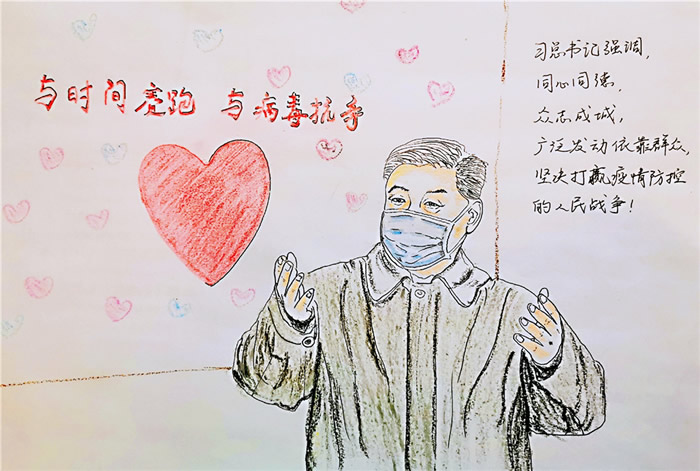 与时间赛跑 与病毒抗争
习总书记强调,
同心同德,
众志成城,
广泛发动依靠群众,
坚决打赢疫情防控
的人民战争!